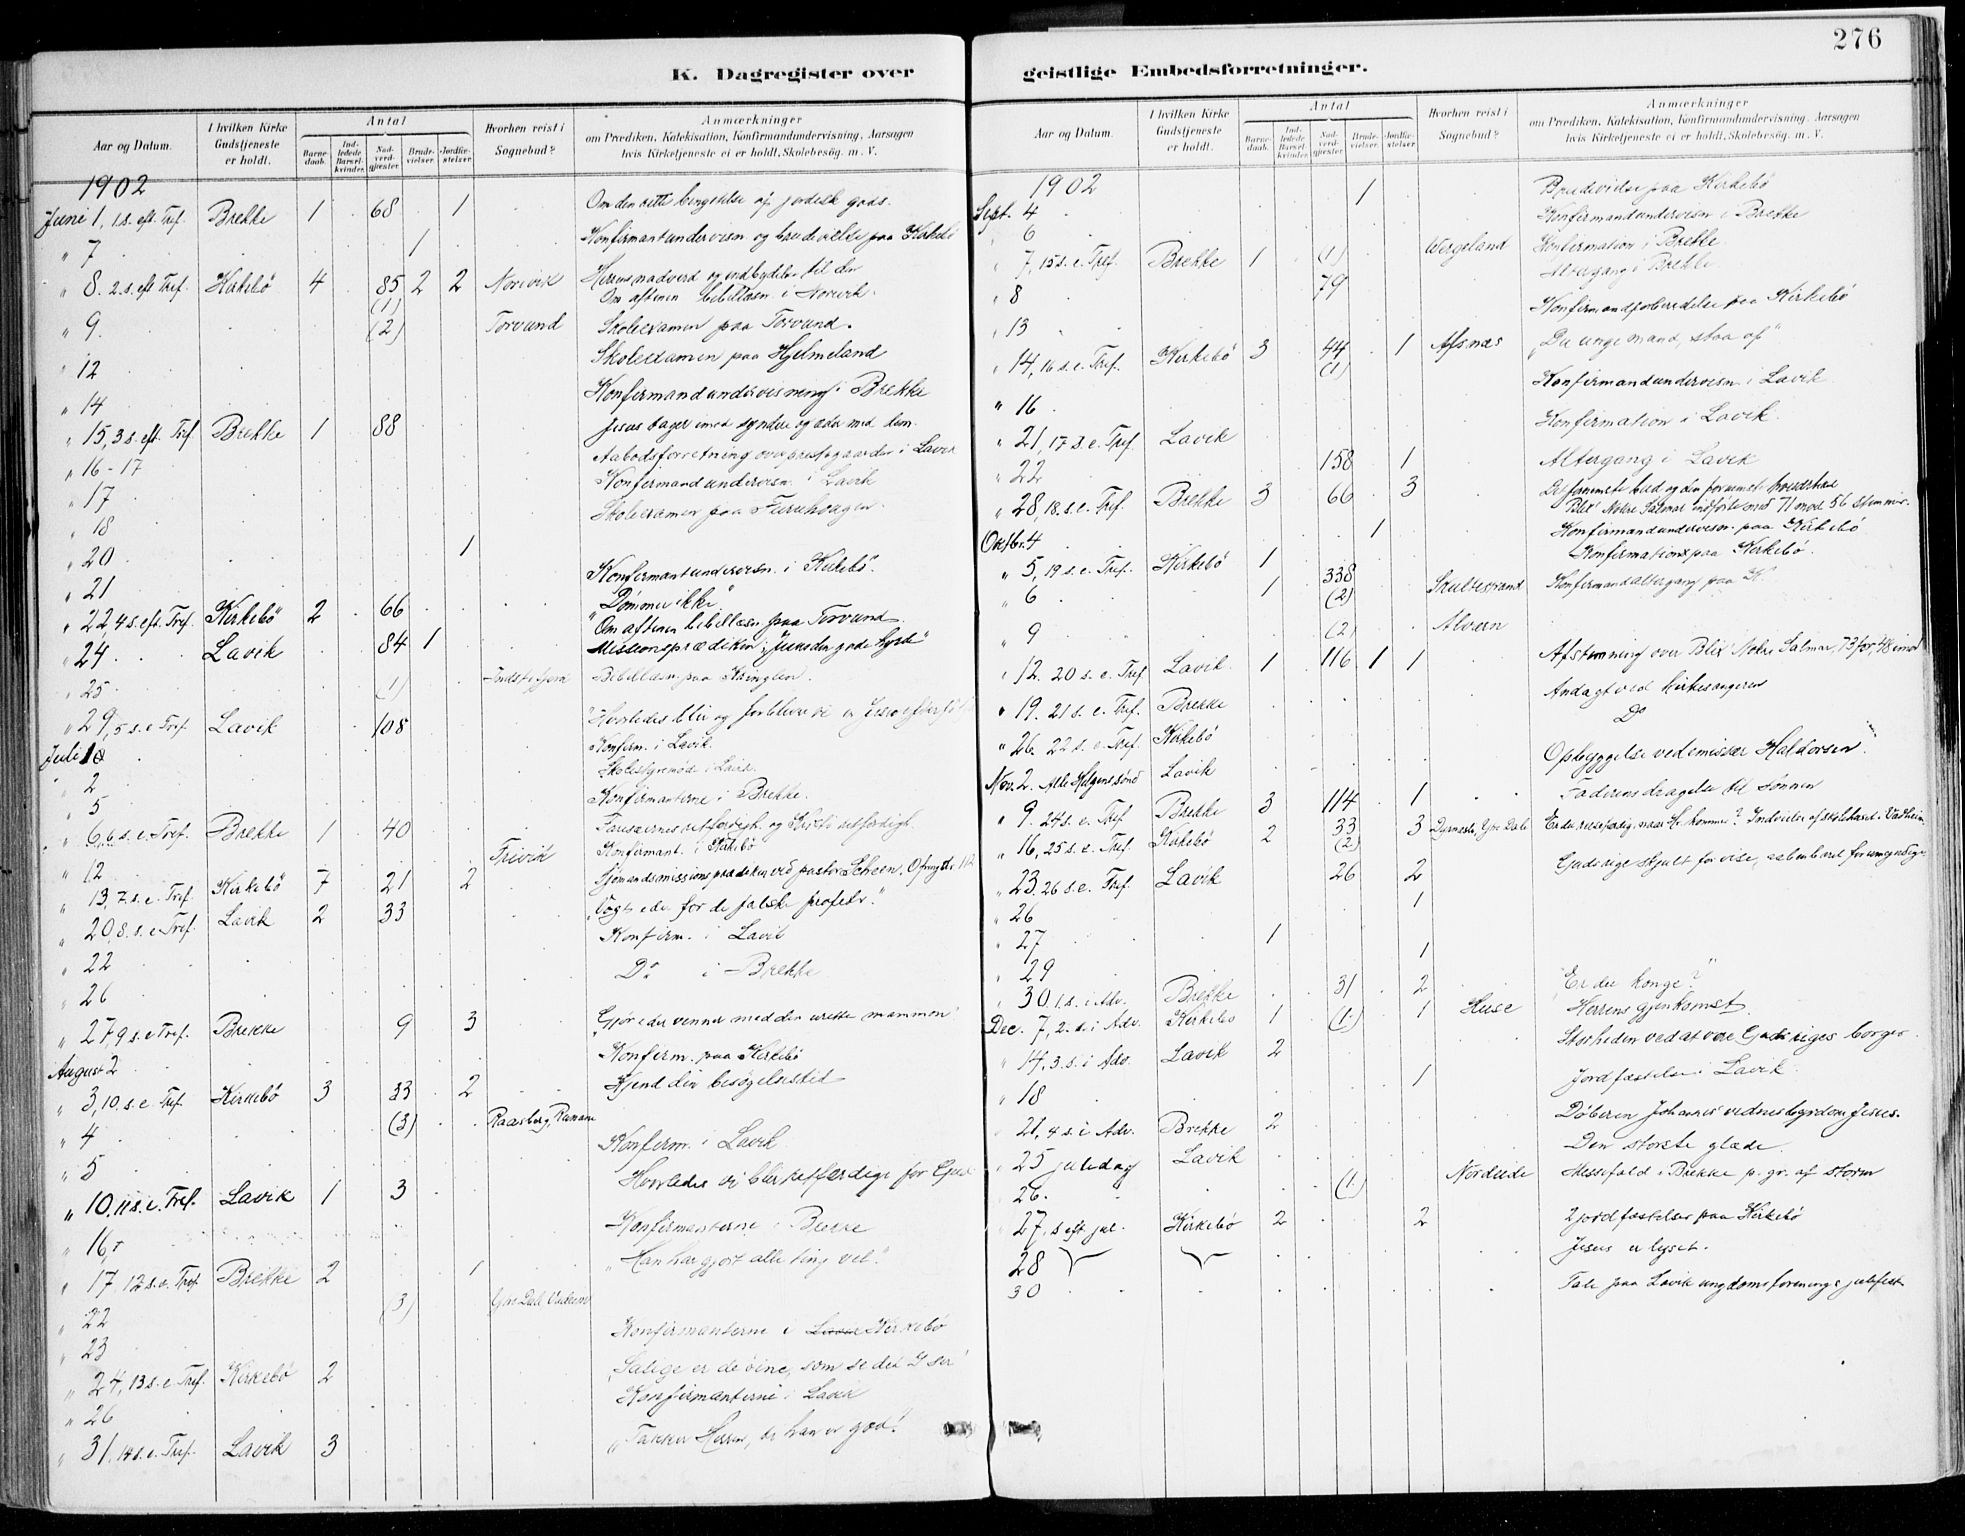 K. Dagregister over
Aar og Datum. I hvilken Kirke Gudstjeneste er holdt. Antal Barnedaab. Indledede Barselkvinder. Nadverdgjester Brudevielser. Jordfæstelser Hvorhen reist i Sognebud? Anmærkninger om Prædiken, Katekisation, Konfirmandundervisning, Aarsagen hvis Kirketjeneste ei er holdt, Skolebesög. m. V.
1902
June 1, 1.s. eft. Tref. Brekke 1 68 1 Om den rette af jordisk gods.
" 7 1 Konfirmantundervisn og brudevielse paa Kirkebö
" 8. 2.s. eft Tref. Kirkebö 4 85 (1) 2 2 Norevik Herrens nadverd og indbydelse til den
Om aftenen bibellæsn. i Norevik.
" 9. (2) Torvund Skoleexamen paa Torvund.
" 12 Skoleexamen paa Hjelmeland
" 14 Konfirmandundervisning i Brekke
" 15, 3 s. eft. Tref. Brekke 1 88 Jesus tager imod syndere og æder med dem.
" 16-17 Aabodsforretning over prestegaarden i Lavik
" 17 Konfirmandundervisn. i Lavik
" 18 Skoleexamen paa
" 20 1
" 21 Konfirmantundervisn. i Kirkebö.
" 22, 4 s. eft. Tref. Kirkebö 2 66 "Dömmer ikke"
Om aftenen bibellæsn paa Torvund
" 24 Lavik 84 1 Missionsprædiken: "Jesus den gode hyrde"
" 25 (1) Bibellæsn. paa
" 29, 5 s. e Tref. Lavik 108 "Hvorledes blir og forblive vi
Juli 1 Konfirm. i Lavik.
" 2 Skolestyremöde i Lavik
" 5 Konfirmanterne i Brekke.
" 6, 6 s. e. Tref. Brekke 1 40 Farisæernes retfærdigh. og Kristi retfærdigh.
" 12 Trivik Konfirmant. i Kirkebö
" 13, 7. s. e. Tref. Kirkebö 7 21 2 Sjömandsmissionsprædiken ved pastor Scheen. 112
" 20, 8. s. e. Tref. Lavik 2 33 "Vogt eder for de falske profeter."
" 22 Konfirm. i Lavik
" 26 Do i Brekke
" 27 9 s. e Tref. Brekke 9 3 Gjör eder venner med den urette mammon
August 2 Konfirm. paa Kirkebö
" 3, 10. s. e Tref. Kirkebö 3 33 2 Kjend din besögelsestid
" 4 (3) Raasberg,
" 5 Konfirm. i Lavik
" 10, 11 s. e. Tref. Lavik 1 3 Hvorledes vi blir retfærdige for Gud
" 16, Konfirmanterne i Brekke
" 17, 12 s. e. Tref. Brekke 2 1 "Han har gjort alle ting vel."
" 22 (3) Ytre Dale Vadeim
" 23 Konfirmanterne i Lavik Kirkebö
" 24, 13 s. e Tref. Kirkebö 2 "Salige er de öine, som se det I ser"
" 26 Konfirmanterne i Lavik
" 31, 14 s. e. Tref. Lavik 3 "Takker Herren, ti han er god!"
276
geistlige Embedsforretninger.
Aar og Datum. I hvilken Kirke Gudstjeneste er holdt. Antal Barnedaab. Indledede Barselkvinder. Nadverdgjester Brudevielser. Jordfæstelser Hvorhen reist i Sognebud? Anmærkninger om Prædiken, Katekisation, Konfirmandundervisning, Aarsagen hvis Kirketjeneste ei er holdt, Skolebesög. m. V.
1902
Sept. 4 1 Brudevielse paa Kirkebö
" 6 Konfirmandundervisn i Brekke
" 7, 15 s. e. Tref. Brekke 1 (1) Wergeland Konfirmation i Brekke
" 8 79 Altergang i Brekke
" 13 Konfirmandforberedelse paa Kirkebö
" 14, 16 s. e. Tref. Kirkebö 3 44 (1) 1 Afsnæs "Du unge mand, staa op"
" 16 Konfirmandundervisn. i Lavik
" 21, 17 s. e. Tref. Lavik Konfirmation i Lavik.
" 22 158 1 Altergang i Lavik
" 28, 18. s. e. Tref. Brekke 3 66 3 Det fornemste bud og den fornemste
Blix' Nokre Salmar indförte med 71 mod 56 stemmer.
Oktbr. 4 1 Konfirmandundervisn. paa Kirkebö
" 5, 19 s. e. Tref. Kirkebö 1 Konfirmation paa Kirkebö.
" 6 1 338 (2) Konfirmandaltergang paa K.
" 9 (2) Alværn
" 12. 20 s. e. Tref Lavik. 1 116 1 1 Afstemning over Blix Nokre Salmar, 73 for, 48 imod
" 19. 21 s. e. Tref. Brekke Andagt ved kirkesangeren
" 26. 22 s. e. Tref. Kirkebö Do
Nov. 2. Alle Helgens sönd Lavik Opbyggelse ved emissær Haldorsen.
" 9. 24 s. e. Tref Brekke 3 114 1 Faderens dragelse til Sönnen
" 16, 25 s. e. Tref. Kirkebö 2 33 (2) 3 Ytre Dale Er du reisefærdig, naar kommer? Indvielse af skolehuset i Vadheim
" 23, 26 s. e. Tref Lavik 26 2 Guds rige skjult for vise, aabenbaret for umyndige
" 26 1
" 27 1
" 29 1
" 30. 1. s. i Adv. Brekke 31 2 "Er du konge?"
Dec. 7, 2. s. i Adv. Kirkebö 1 (1) 1 Huse Herrens gjenkomst
" 14, 3. s. i Adv. Lavik 2 Storheden ved at være Guds riges borger
" 18 1 Jordfæstelse i Lavik.
" 21, 4 s. i Adv. Brekke 2 Döberen Johannes' vidnesbyrd om Jesus.
" 25 juledag Lavik Den störste glæde.
" 26. (1) Nordeide Messefald i Brekke p. gr. af storm
" 27, s eft jul. Kirkebö 2 2 2 jordfæstelser paa Kirkebö
28 Jesus er lyset.
30 Tale paa Lavik ungdomsforenings julefest